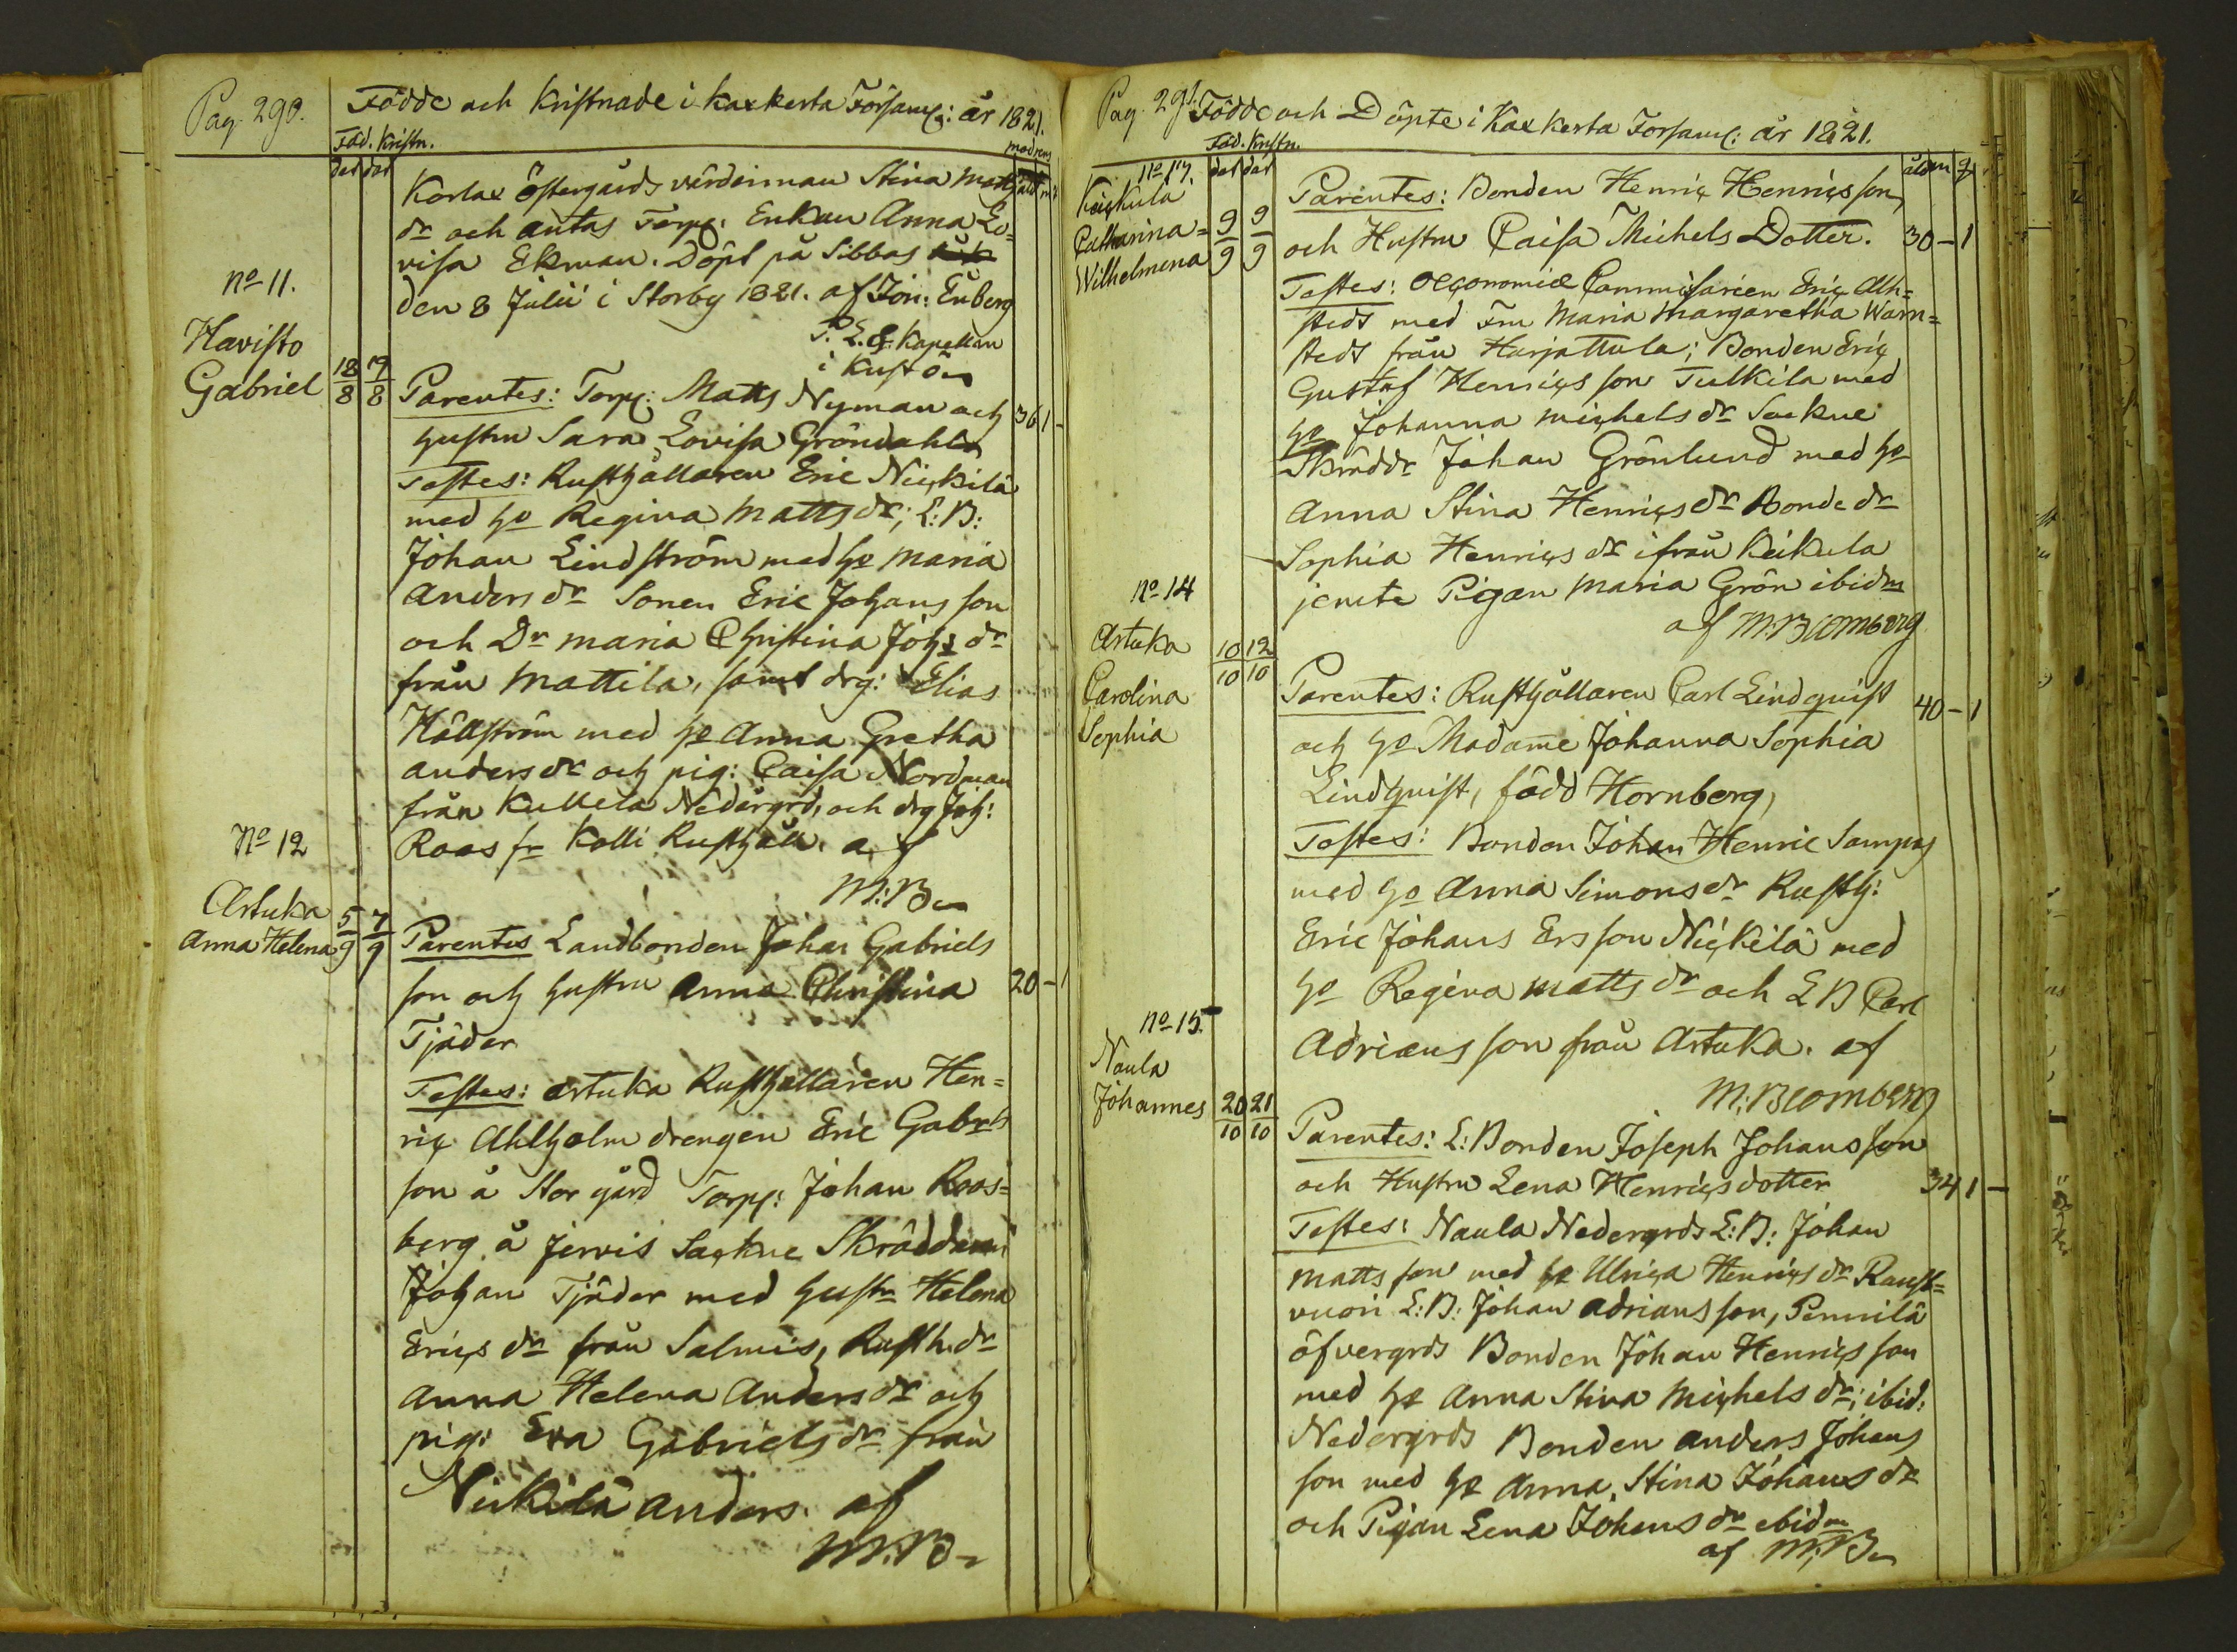 Pag. 290.
Födde och Kristnade i Kaxkerta Församl: år 1821.
Föd. Kristn.
dat dat
modrens
Korlax Östergårds värdinnan Stina Matts
dr och antas Torp. Enkan Anna Lo=
visa Ekman. Döpt på Sibbas
den 8 Julii i Storby 1821. af Jon: Enberg
P. L. & Kapellan
i Kustö
No 11.
Havisto
Gabriel
18/8 19/8
Parentes: Torp: Matts Nyman och
36 1 -
hustru Sara Lovisa Gröndahl
Testes: Rusthållaren Eric Nickilä
med ho Regina Matts dr; L: B:
Johan Lindström med ho Maria
Anders dr Sonen Eric Johans son
och Dr Maria Christina Johs dr
från Mattila, samt drg: Elias
Hällström med ho Anna Gretha
Anders dr och pig: Caisa Nordman
från Kullela Nedårgrd, och drg Joh:
Roos fr Kolli Rusthåll. af
M: B
No 12
Artuka
Anna Helena
5/9 7/9
Parentes Landbonden Johan Gabriels
son och hustru Anna Christina
20 - 1
Tjäder
Testes: Artuka Rusthållaren Hen=
ric Ahlholm drengen Eric Gabrls
son å Stor gård Torp: Johan Roos=
berg å Jervis Sackue Skräddaren
Johan Tjäder med hustr Helena
Erics dr från Salmis, Rusth. dr
Anna Helena Anders dr och
pig: Eva Gabriels dr från
Nickilä Anders. af
M: B
Pag. 291.
Födde och Döpte i Kaxkerta Forsaml: år 1821.
Föd. Kristn.
dat dat
åldern
No 13.
Keikula
Catharina=
Wilhelmina
9/9 9/9
Parentes: Bonden Henric Henrics son
och Hustru Caisa Michels Dotter. 30 - 1
Testes: Oeconomie Commissarien Eric Alh=
stedt med Fru Maria Margaretha Warn=
stedt från Harjattula; Bonden Eric
Gustaf Henrics son Tulkila med
ho Johanna Michels dr Sackue
Skrädd: Johan Grönlund med ho
Anna Stina Henrics dr Bonde dr
Sophia Henrics dr ifrån Keikula
jemte Pigan Maria Grön ibidm
af M: Blomberg
No 14
Artuka
Carolina
Sophia
10/10 12/10
Parentes: Rusthållaren Carl Lindquist
40 - 1
och ho Madame Johanna Sophia
Lindquist, född Hornberg,
Testes: Bonden Johan Henric Sampas
med ho Anna Simons dr Rusth:
Eric Johans Ersson Nickilä med
ho Regina Matts dr och L B Carl
Adrians son från Artuka. af
M: Blomberg
No 15.
Naula
Johannes
20/10 21/10
Parentes: L: Bonden Joseph Johans son
och Hustru Lena Henrics dotter
34 1 -
Testes: Naula Nedergrds L: B: Johan
Matts son med ho Ulrica Henrics dr Raust=
vuori L: B: Johan Adrians son, Pennilä
öfvergrds Bonden Johan Henrics son
med ho Anna Stina Michels dr; ibid:
Nedergrds Bonden Anders Johans
son med ho Anna Stina Johans dr
och Pigan Lena Johans dr ibidm
af M: B